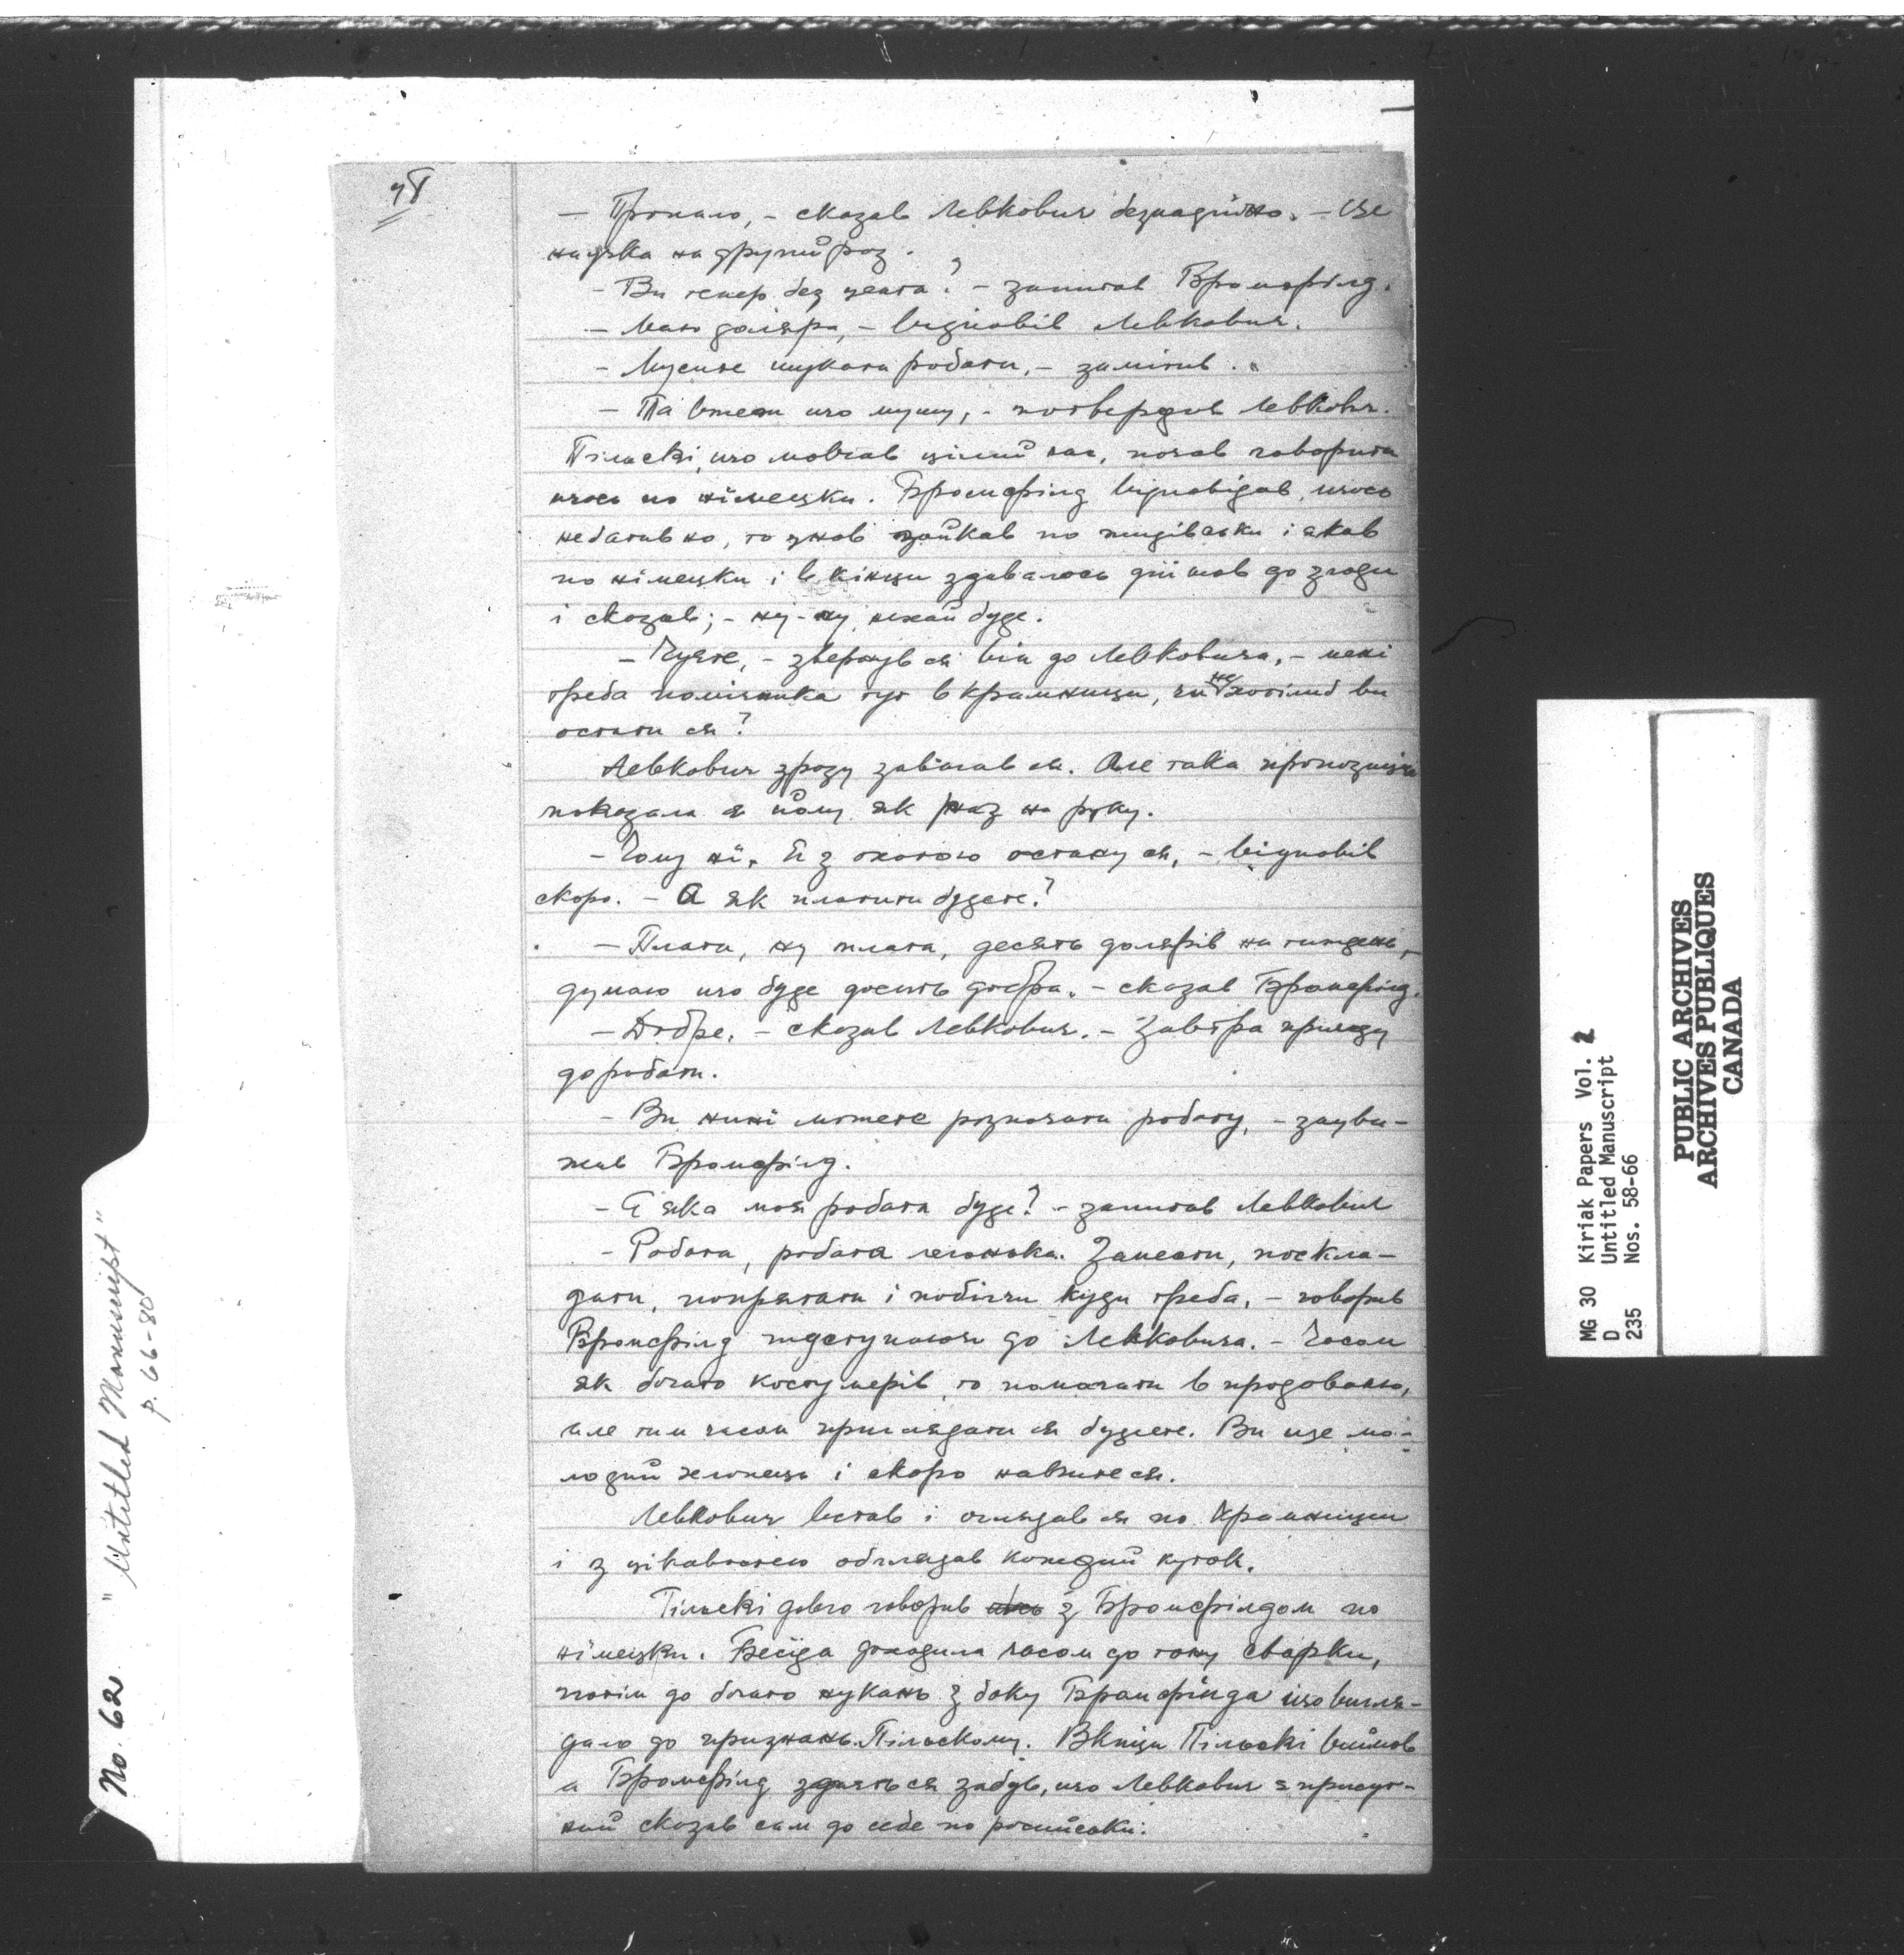 78
— Пропало, – сказав Левкович безнадійно. – Це
наука на другий раз.
– Ви тепер без цента? – запитав Бромфілд.
– Маю доляра, – відповів Левкович.
– Мусите шукати роботи, – замітив.
– Та вже що мушу, – потвердив Левкович.
Пільскі, що мовчав цілий час, почав говорити
щось по німецьки. Бромфілд відповідав, щось
негативно, то знов по жидівськи і
по німецьки і в кінци здавалось дійшов до згоди
і сказав; – ну-ну, нехай буде.
– Чуєте, – звернув ся він до Левковича, – мені
треба помічника тут в крамници, чи не хотілиб ви
остати ся?
Левкович зразу завагав ся. Але така пропозиція
показала ся йому як раз на руку.
– Чому ні. Я з охотою остану ся, – відповів
скоро. – А як платити будете?
– Плата, ну плата, десять долярів на тиждень,
думаю що буде досить добра. – сказав Бромфілд.
– Добре. – сказав Левкович. – Завтра прийду
до роботи.
– Ви нині можете розпочати роботу, – заува-
жив Бромфілд.
– Я яка моя робота буде? – запитав Левкович
– Робота, робота легонька. Занести, поскла-
дати, попрятати і побічи куди треба, – говорив
Бромфілд підступаючи до Левковича. – Часом
як богато костумерів, то помагати в продаванню,
але тим часом приглядати ся будете. Ви ще мо-
лодий хлопець і скоро навчите ся.
Левкович встав і оглядав ся по крамници
і з цікавостею обглядав кождий куток.
Пільскі довго говорив з Бромфілдом по
німецьки. Бесїда доходила часом до тону сварки,
потім до богато нукань з боку Бромфілда що вигля-
дало до признань Пільскому. В кінци Пільскі вийшов
а Бромфілд здаєть ся забув, що Левкович є присут-
ний сказав сам до себе по російськи:
No. 62 "Untitled Manuscript"
p. 66-80
MG 30 Kiriak Papers Vol. 2
D Untitled Manuscript
235 Nos. 58-66
PUBLIC ARCHIVES
ARCHIVES PUBLIQUES
CANADA